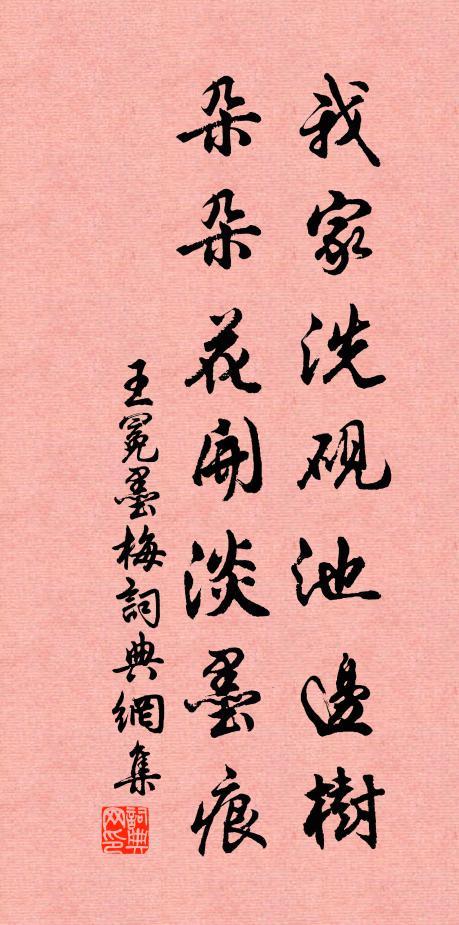 我家洗硯池邊樹
朵朵花開淡墨痕
王冕墨梅詞典網集
詞典网印